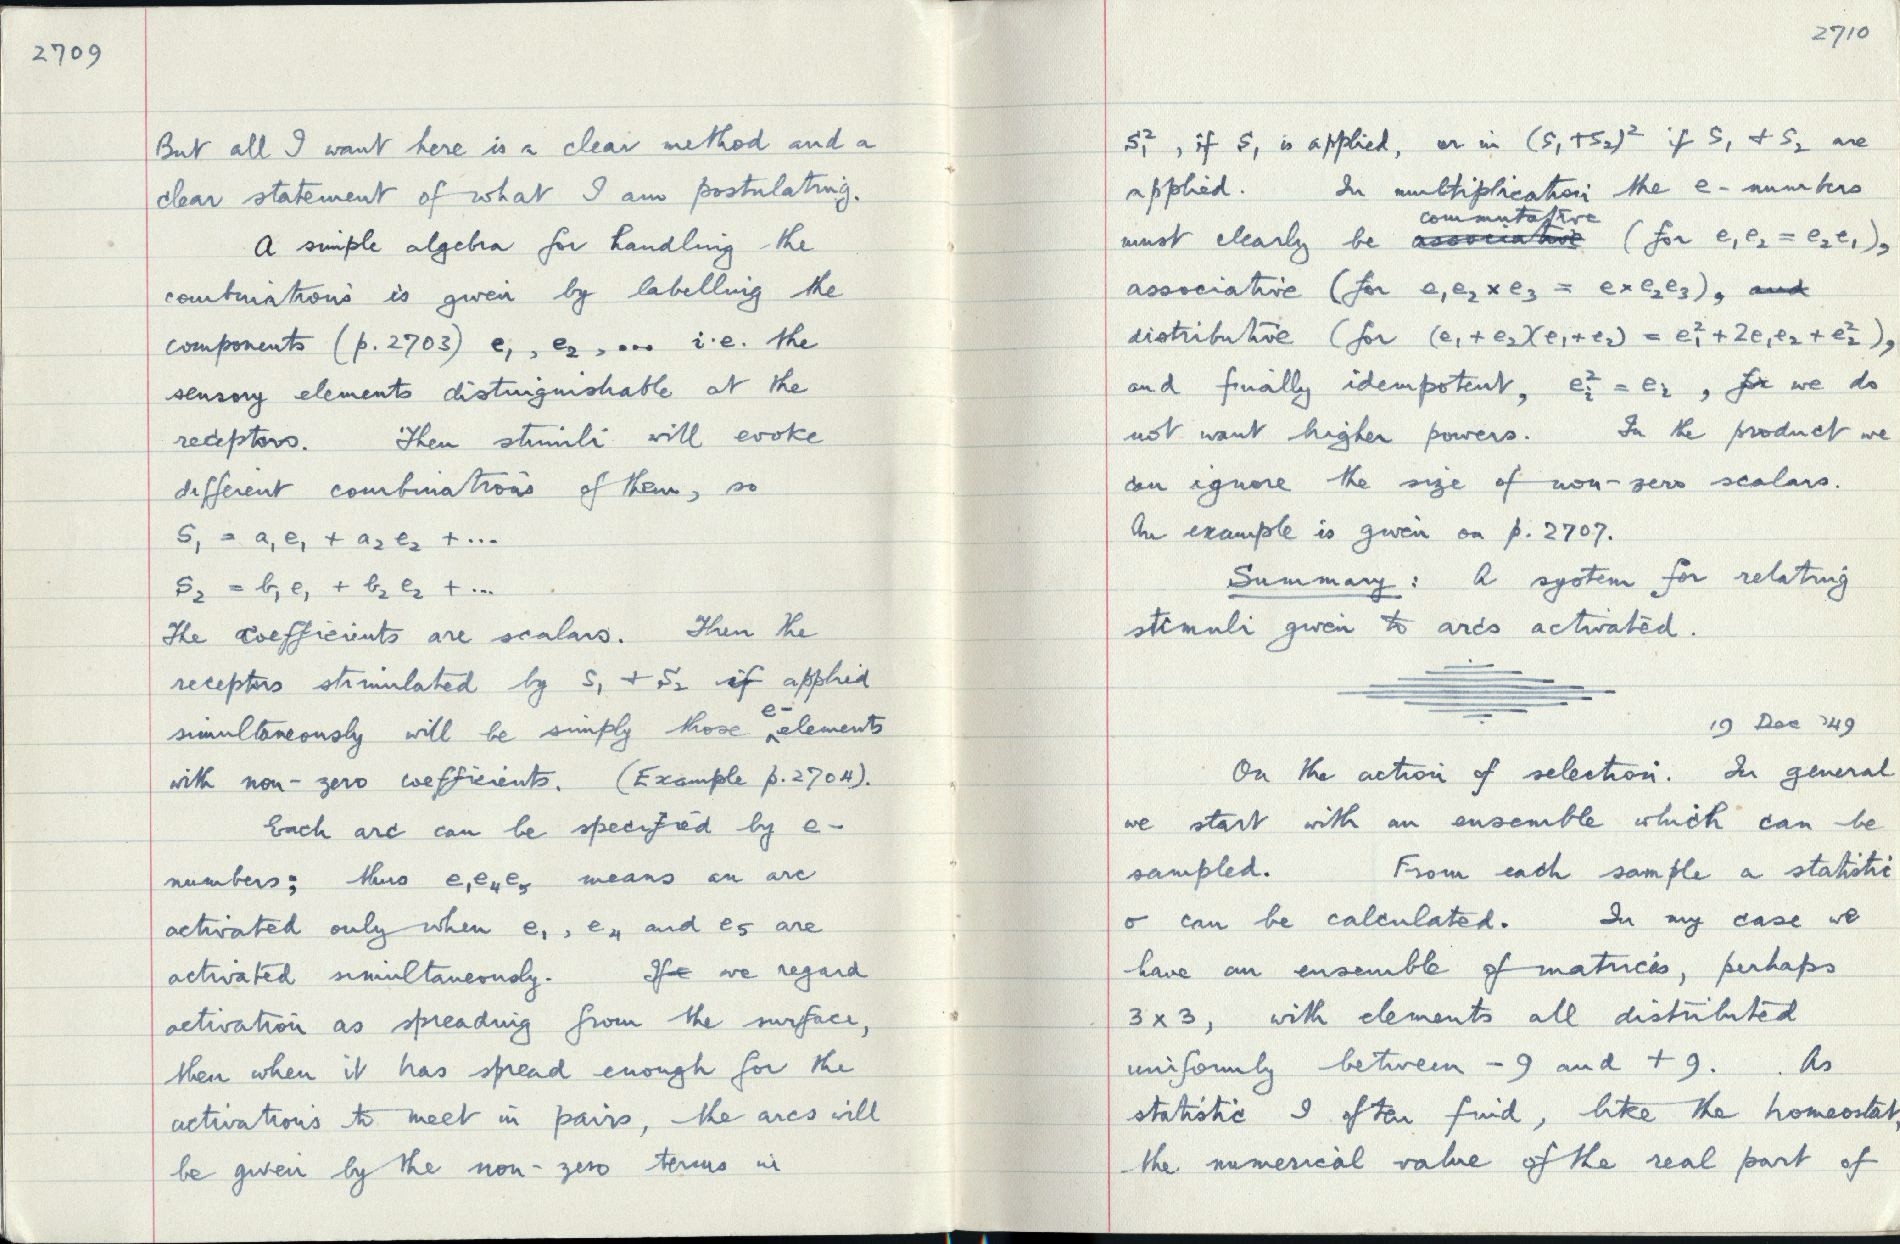 2709
But all I want here is a clear method and a
clear statement of what I am postulating.
A simple algebra for handling the
combinations is given by labelling the
components (p.2703) e₁, e₂, ... i.e. the
sensory elements distinguishable at the
receptors. Then stimuli will evoke
different combinations of them, so
S₁ = a₁e₁ + a₂e₂ + ...
S₂ = b₁e₁ + b₂e₂ + ...
The coefficients are scalars. Then the
receptors stimulated by S₁ + S₂ if applied
simultaneously will be simply those e-elements
with non-zero coefficients. (Example p.2704).
Each arc can be specified by e-
numbers; thus e₁e₄e₅ means an arc
activated only when e₁, e₄ and e₅ are
activated simultaneously. If we regard
activation as spreading from the surface,
then when it has spread enough for the
activations to meet in pairs, the arcs will
be given by the non-zero terms in
2710
S₁², if S₁ is applied, or in (S₁+S₂)² if S₁ + S₂ are
applied. In multiplication the e-numbers
commutative
must clearly be associative (for e₁e₂ = e₂e₁),
associative (for e₁e₂×e₃ = e×e₂e₃), and
distributive (for (e₁+e₂)(e₁+e₂) = e₁²+2e₁e₂+e₂²),
and finally idempotent, e₂² = e₂, for we do
not want higher powers. In the product we
can ignore the size of non-zero scalars.
An example is given on p. 2707.
Summary: A system for relating
stimuli given to arcs activated.
19 Dec '49
On the action of selection. In general
we start with an ensemble which can be
sampled. From each sample a statistic
σ can be calculated. In my case we
have an ensemble of matrices, perhaps
3 x 3, with elements all distributed
uniformly between -9 and +9. As
statistic I often find, like the homeostat,
the numerical value of the real part of